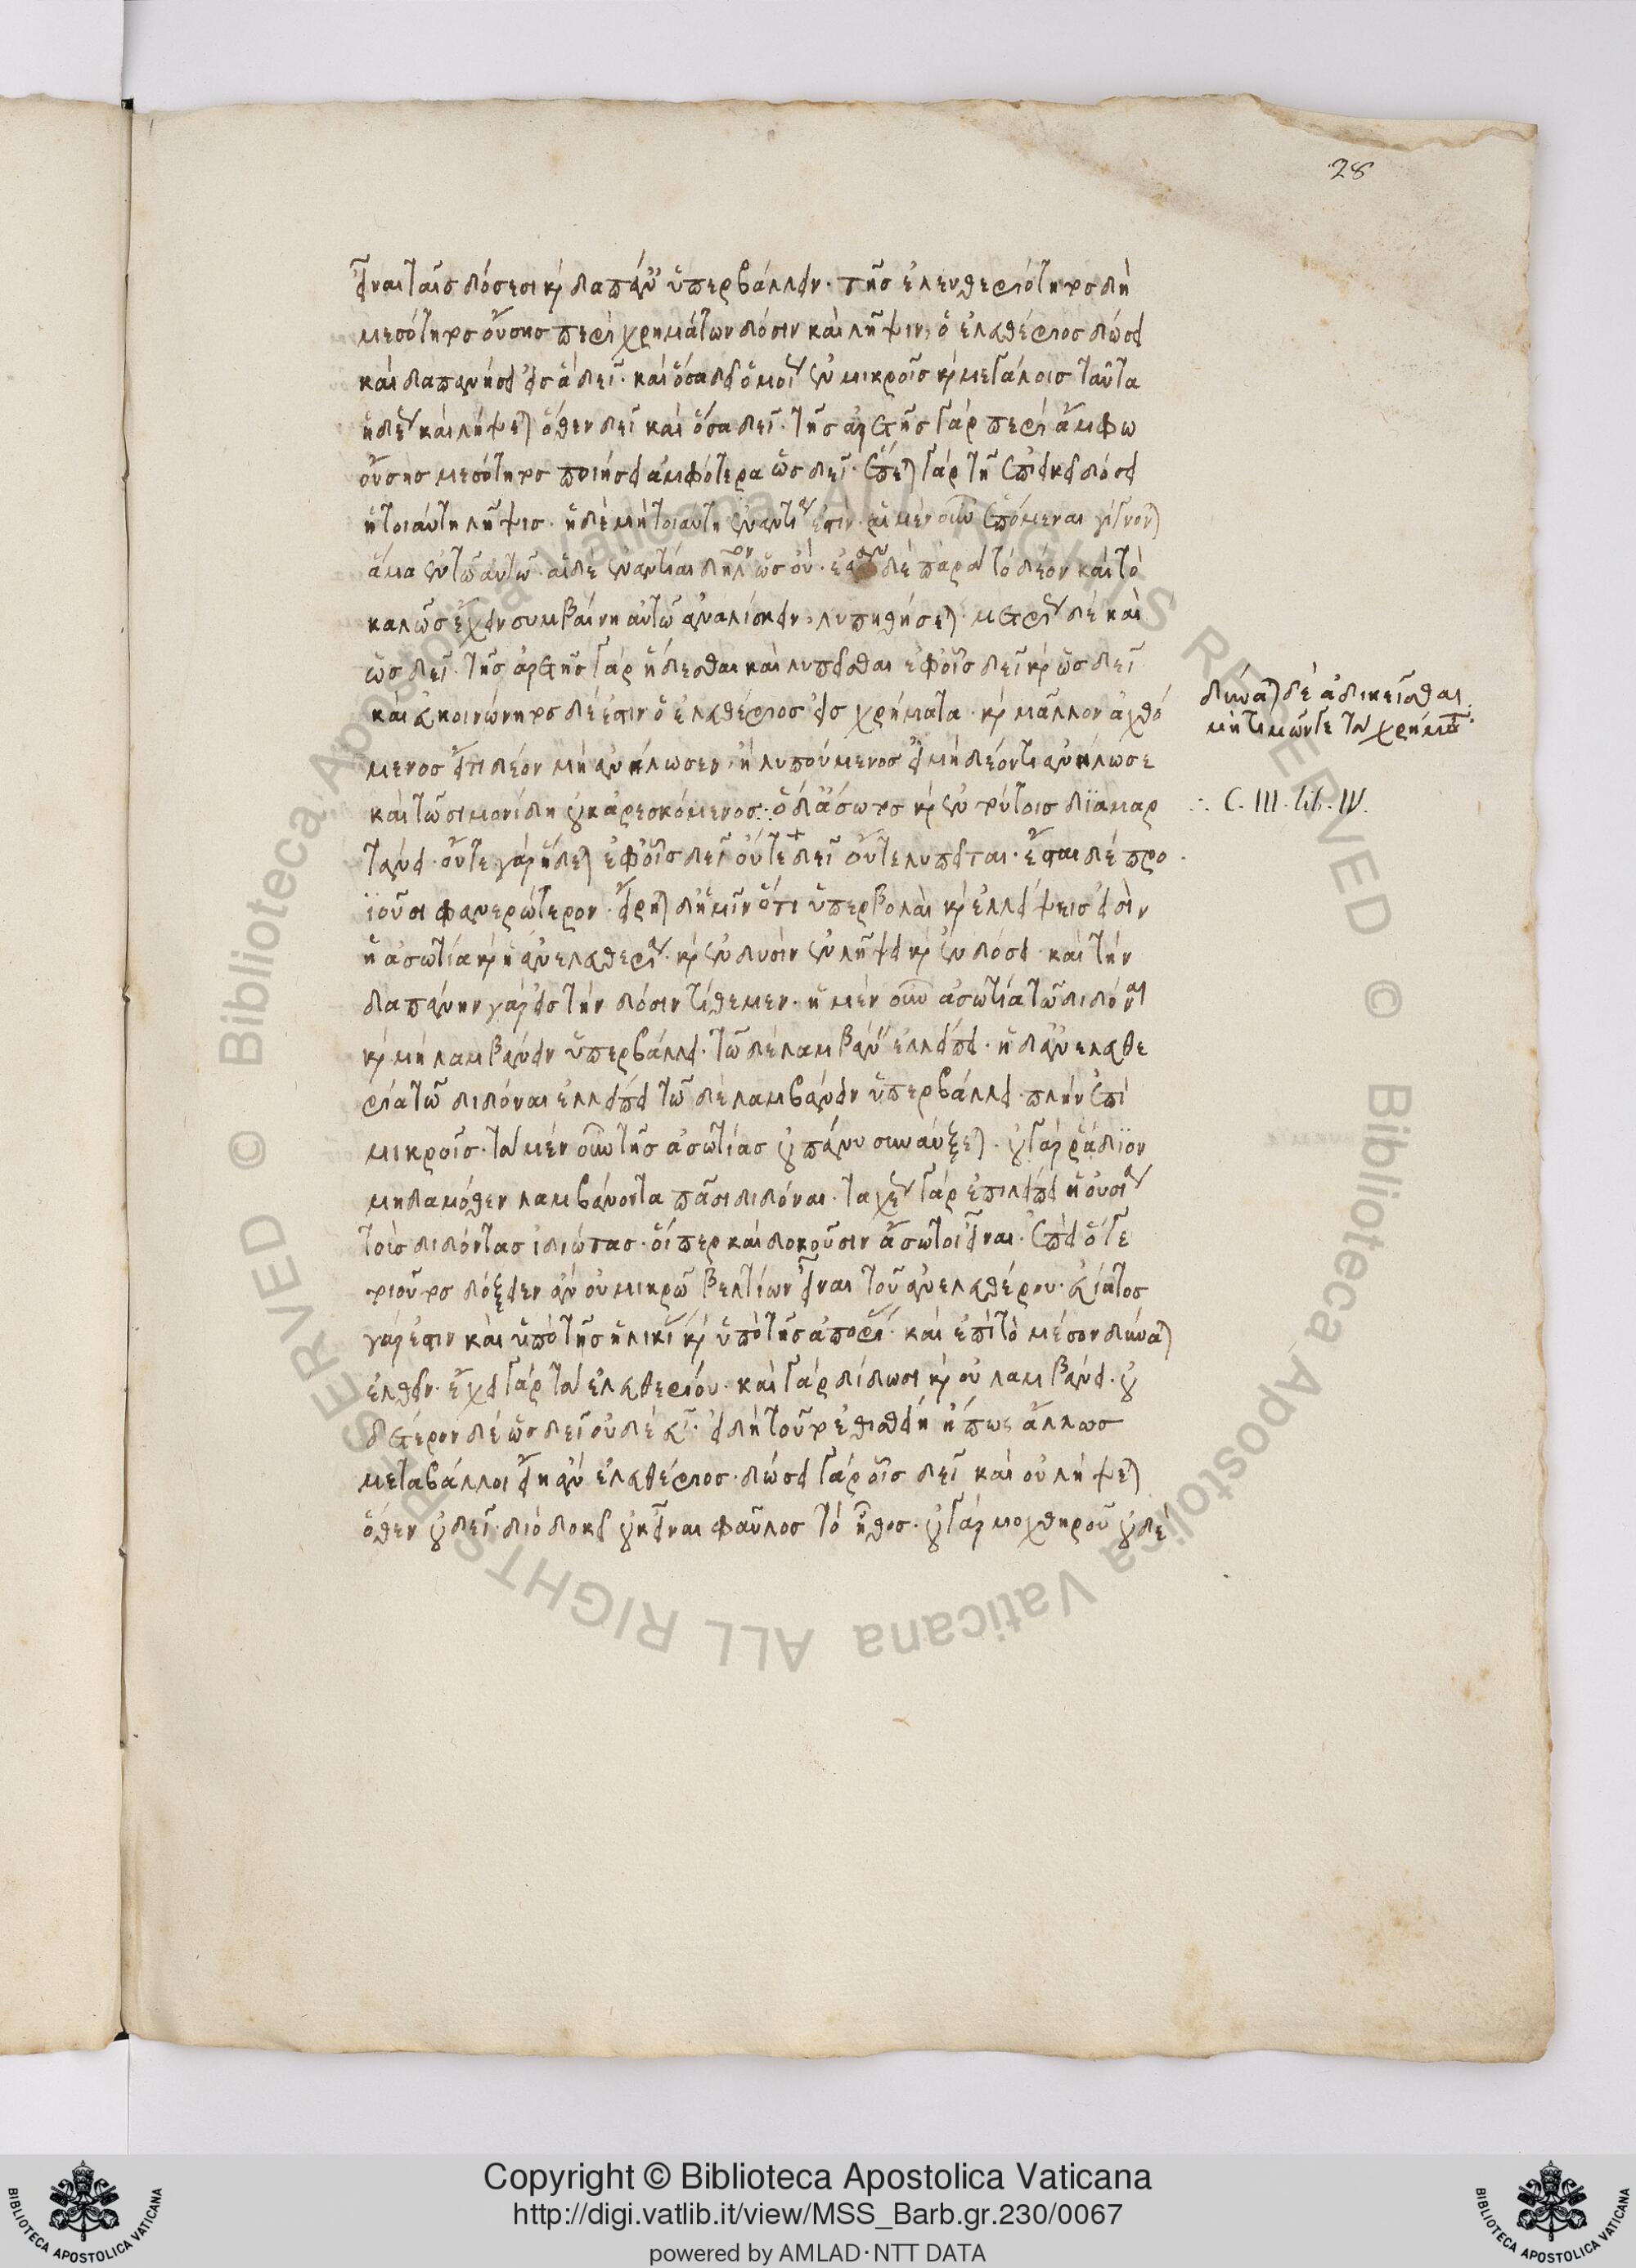 28
εἶναι ταῖς δόσεσι καὶ δαπάναις ὑπερβάλλειν. τῆς ἐλευθεριότητος δὴ
μεσότητος οὔσης περὶ χρημάτων δόσιν καὶ λῆψιν, ὁ ἐλευθέριος δώσει
καὶ δαπανήσει εἰς ἃ δεῖ. καὶ ὅσα δεῖ ὁμοίως ἐν μικροῖς καὶ μεγάλοις ταῦτα
ἡδέως καὶ λήψεται ὅθεν δεῖ καὶ ὅσα δεῖ. τῆς ἀρετῆς γὰρ περὶ ἄμφω
οὔσης μεσότητος ποιήσει ἀμφότερα ὡς δεῖ. ἕπεται γὰρ τῆ ἐπιεικεῖ δόσει
ἡ τοιαύτη λῆψις. ἡ δὲ μὴ τοιαύτη ἐναντία ἐστίν. αἱ μὲν οὖν ἑπόμεναι γίγνονται
ἅμα ἐν τῶ αὐτῶ. αἱ δὲ ἐναντίαι δῆλον ὡς οὔ. ἐὰν δὲ παρὰ τὸ δέον καὶ τὸ
καλῶς ἔχειν συμβαίνη αὐτῶ ἀναλίσκειν, λυπηθήσεται. μετρίως δὲ καὶ
ὡς δεῖ. τῆς ἀρετῆς γὰρ ἥδεσθαι καὶ λυπεῖσθαι ἐφ' οἷς δεῖ καὶ ὡς δεῖ
καὶ εὐκοινώνητος δέ ἐστιν ὁ ἐλευθέριος εἰς χρήματα. καὶ μᾶλλον ἀχθό
μενος εἴ τι δέον μὴ ἀνήλωσεν, ἢ λυπούμενος εἰ μὴ δέον τι ἀνήλωσε
καὶ τῶ σιμονίδη οὐκ ἀρεσκόμενος ∴ ὁ δ' ἄσωτος καὶ ἐν τούτοις διαμαρ
τάνει. οὔτε γὰρ ἥδεται ἐφ' οἷς δεῖ οὔτε δεῖ οὔτε λυπεῖται. ἔσται δὲ προ
ϊοῦσι φανερώτερον. εἴρηται δὴ ἡμῖν ὅτι ὑπερβολαὶ καὶ ἐλλείψεις εἰσὶν
ἡ ἀσωτία καὶ ἡ ἀνελευθερία. καὶ ἐν δυσὶν ἐν λήψει καὶ ἐν δόσει. καὶ τὴν
δαπάνην γὰρ εἰς τὴν δόσιν τίθεμεν. ἡ μὲν οὖν ἀσωτία τῶ διδόναι
καὶ μὴ λαμβάνειν ὑπερβάλλει. τῶ δὲ λαμβάνειν ἐλλείπει. ἡ δ' ἀνελευθε
ρία τῶ διδόναι ἐλλείπει τῶ δὲ λαμβάνειν ὑπερβάλλει. πλὴν ἐπὶ
μικροῖς. τὰ μὲν οὖν τῆς ἀσωτίας οὐ πάνυ συναύξεται. οὐ γὰρ ῥάδιον
μηδαμόθεν λαμβάνοντα πᾶσι διδόναι. ταχέως γὰρ ἐπιλείπει ἡ οὐσία
τοὺς διδόντας ἰδιώτας. οἵπερ καὶ δοκοῦσιν ἄσωτοι εἶναι. ἐπεὶ ὅ γε
τοιοῦτος δόξειεν ἂν οὐ μικρῶ βελτίων εἶναι τοῦ ἀνελευθέρου. εὐίατος
γάρ ἐστιν καὶ ὑπὸ τῆς ἡλικίας καὶ ὑπὸ τῆς ἀπορίας. καὶ ἐπὶ τὸ μέσον δύναται
ἐλθεῖν. ἔχει γὰρ τὰ ἐλευθερίου. καὶ γὰρ δίδωσι καὶ οὐ λαμβάνει. οὐ
δέτερον δὲ ὡς δεῖ οὐδὲ εὖ. εἰ δὴ τοῦτο ἐθισθείη ἤ πως ἄλλως
μεταβάλλοι εἴη ἂν ἐλευθέριος. δώσει γὰρ οἷς δεῖ καὶ οὐ λήψεται
ὅθεν οὐ δεῖ. διὸ δοκεῖ οὐκ εἶναι φαῦλος τὸ ἦθος. οὐ γὰρ μοχθηροῦ οὐδὲ
δύναται δὲ ἀδικεῖσθαι
μὴ τιμῶν γε τὰ χρήματα.
∴ C. III. lib. IV.
Copyright © Biblioteca Apostolica Vaticana
http://digi.vatlib.it/view/MSS_Barb.gr.230/0067
powered by AMLAD·NTT DATA
BIBLIOTECA APOSTOLICA VATICANA
BIBLIOTECA APOSTOLICA VATICANA
© Biblioteca Apostolica Vaticana ALL RIGHTS RESERVED
© Biblioteca Apostolica Vaticana ALL RIGHTS RESERVED